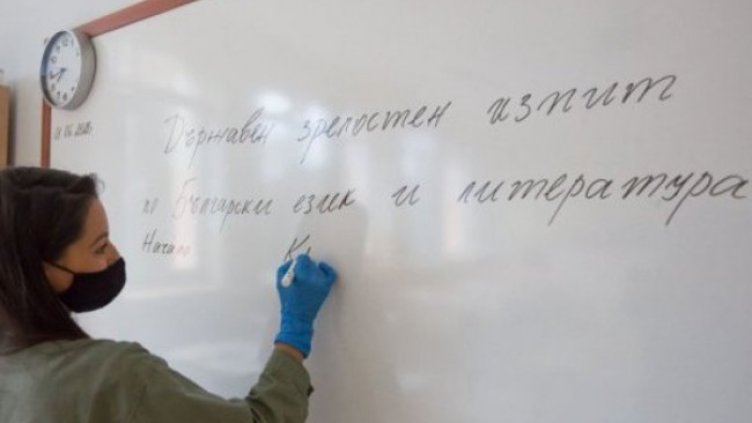 Държавен зрелостен изпит
по Български език и литература
Начало